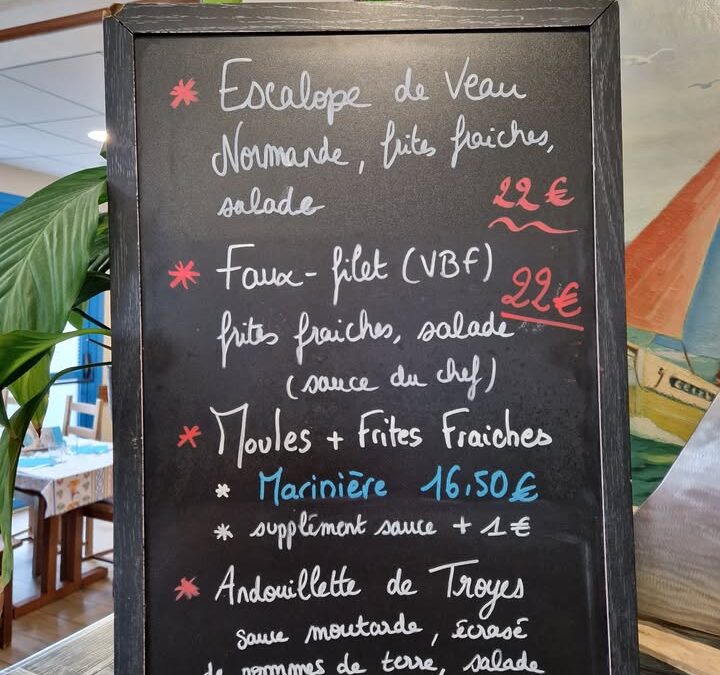 * Escalope de Veau
Normande, frites fraiches,
salade 22€
* Faux-filet (VBF)
22€
frites fraiches, salade
(sauce du chef)
* Moules + Frites Fraiches
* Marinière 16,50€
* supplément sauce + 1€
* Andouillette de Troyes
sauce moutarde, écrasé
de pommes de terre, salade